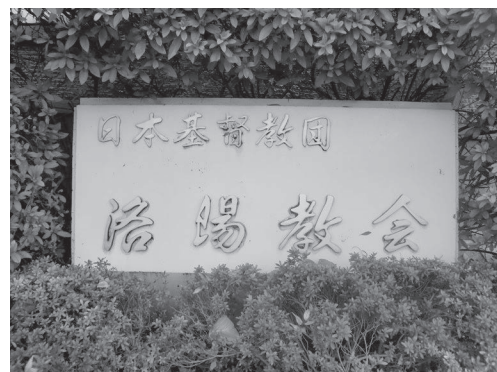 日本基督教団
洛陽教会